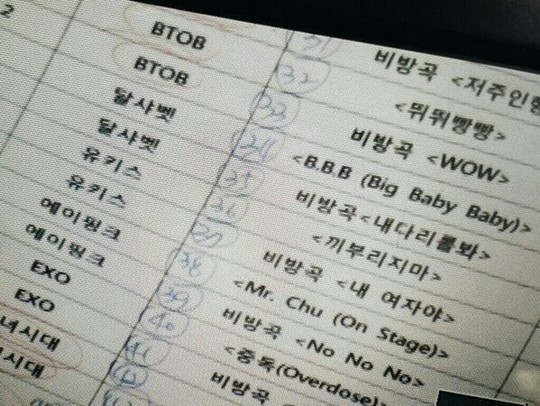 2 BTOB 31 비방곡 <저주인형
BTOB 32 <뛰뛰빵빵>
달샤벳 33 비방곡 <WOW>
달샤벳 34 <B.B.B (Big Baby Baby)>
유키스 35 비방곡<내다리를봐>
유키스 36 <끼부리지마>
에이핑크 37 비방곡 <내 여자야>
에이핑크 38 <Mr. Chu (On Stage)>
EXO 39 비방곡 <No No No>
EXO 40 <중독(Overdose)>
녀시대 41 비방곡
시대 42